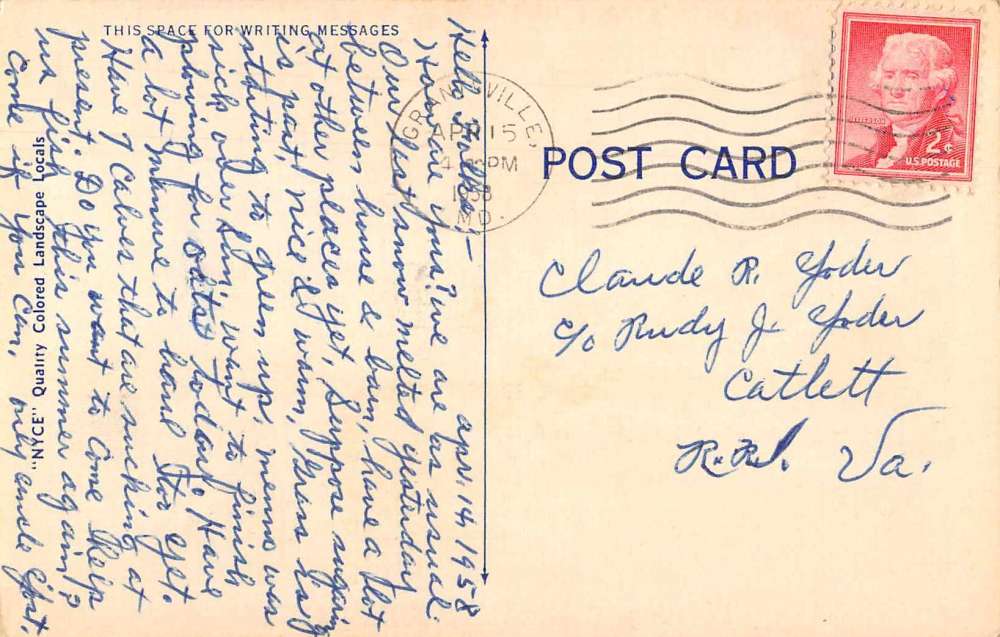 THIS SPACE FOR WRITING MESSAGES
apr. 14, 1958
Hello Folks:-
How are you? we are as usual.
Our last snow melted yesterday
between house & barn, have a lot
at other places yet, Suppose sugaring
is past, nice & warm, Grass is
starting to green up, menno was
sick over Sun, want to finish
plowing for oats today. Have
a lot manure to haul for yet.
Have 7 Calves that are sucking at
present. Do you want to Come help
us fish this summer again?
Come if you Can, only
"NYCE" Quality Colored Landscape Locals
GRANTSVILLE,
APR 15
4 PM
1958
MD.
POST CARD
JEFFERSON
2¢
U.S. POSTAGE
Claude R. Yoder
c/o Rudy J. Yoder
Catlett
Va.